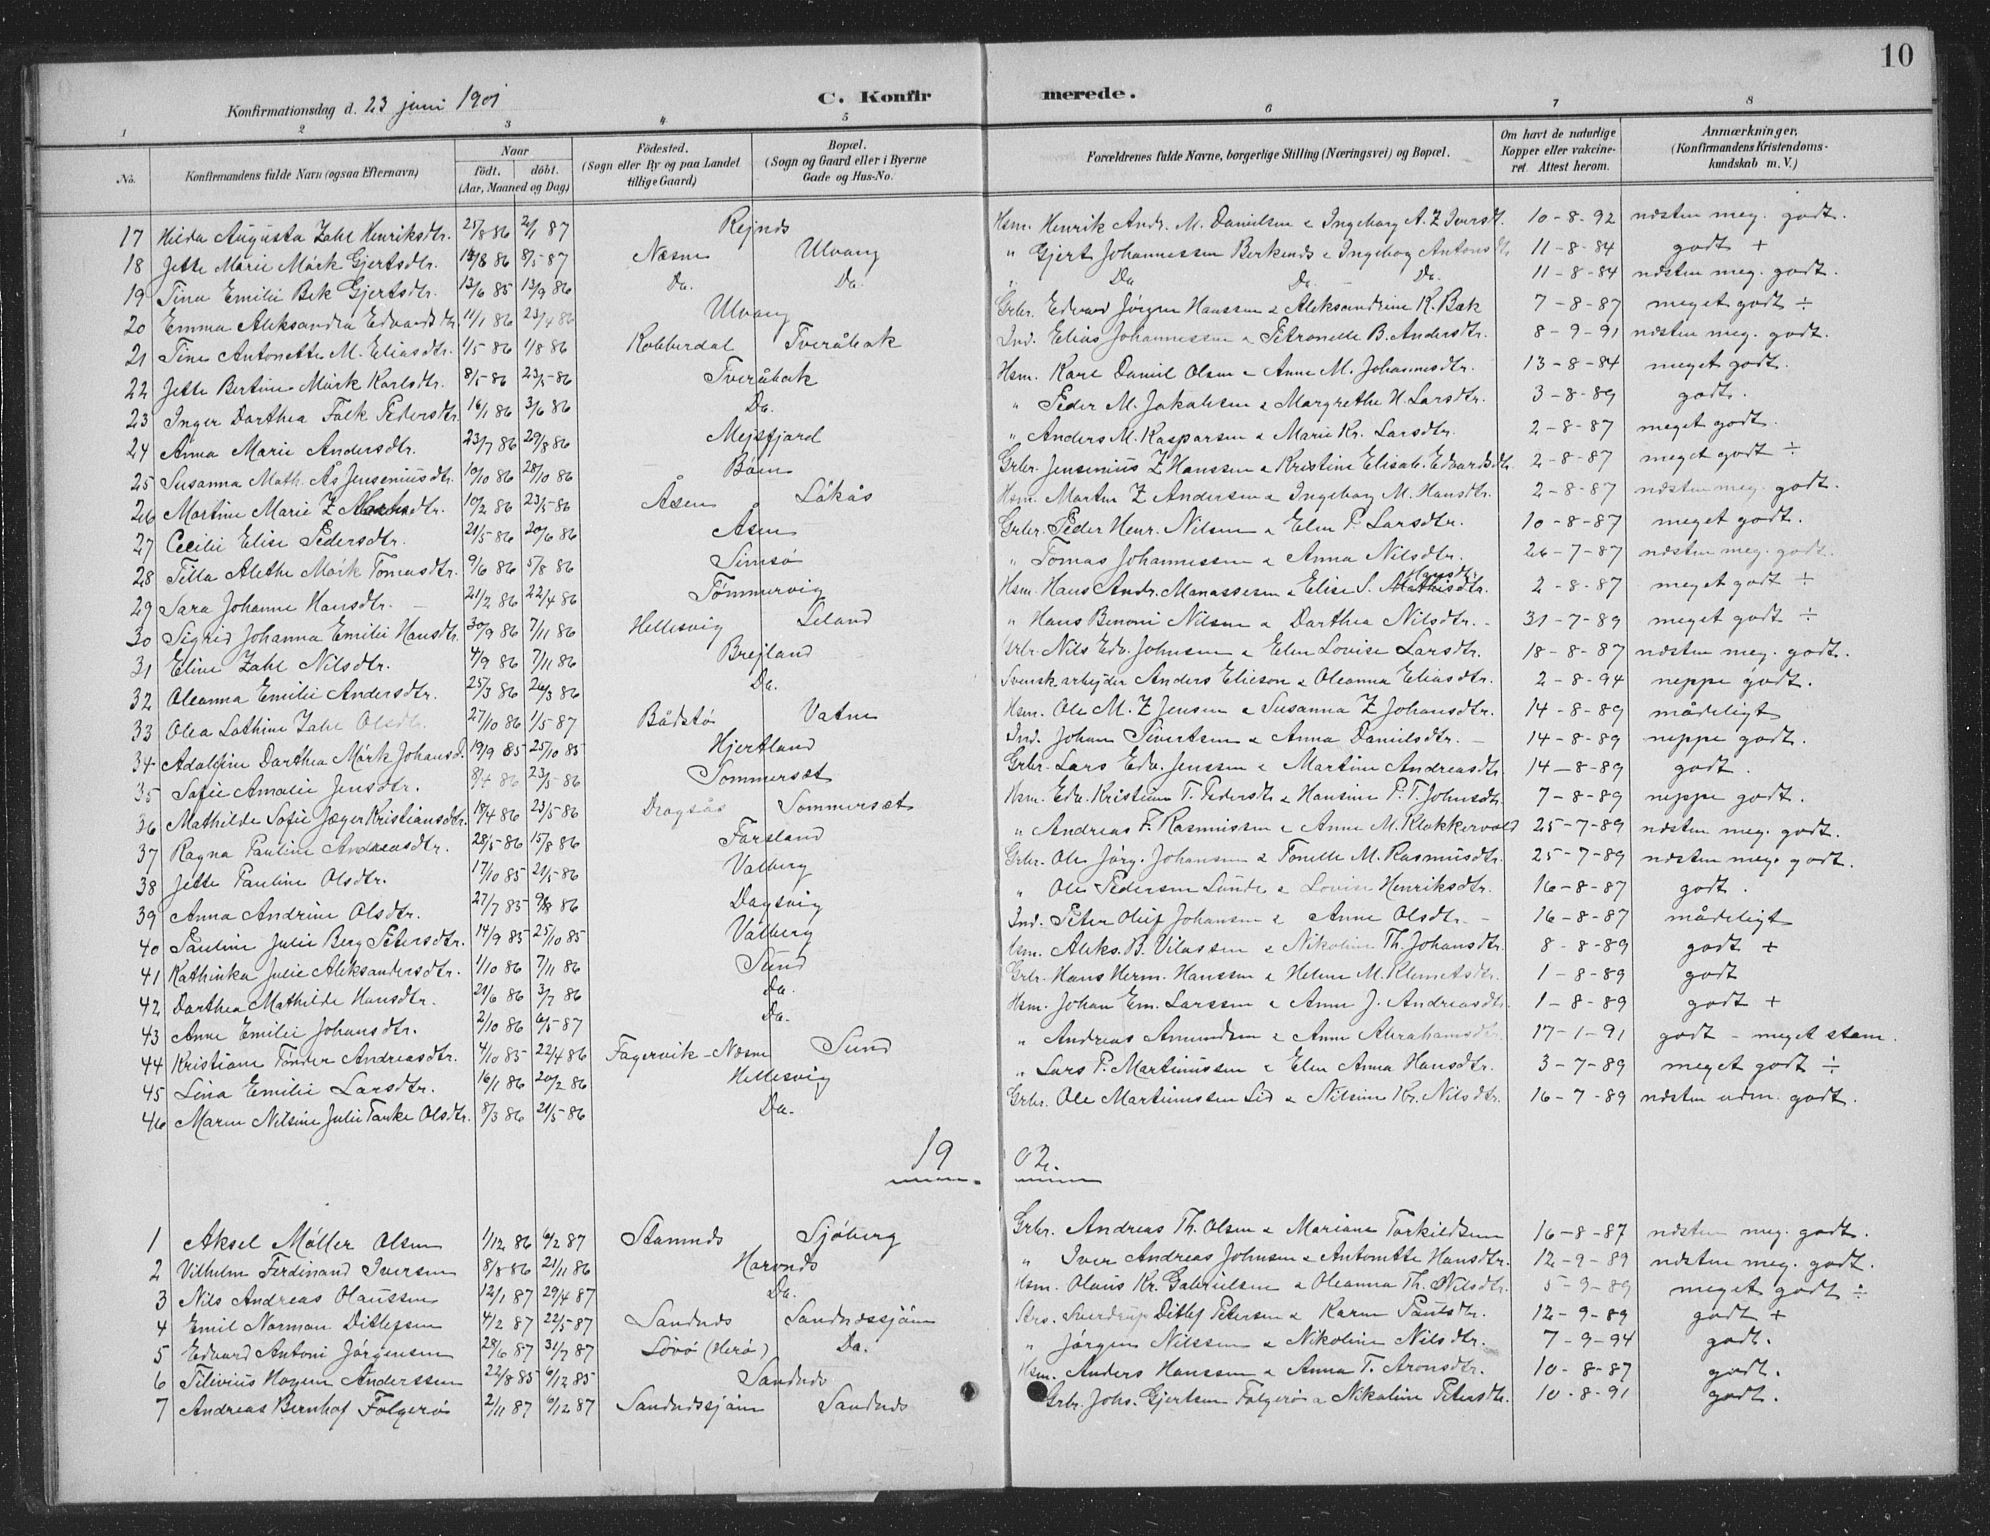 10
Konfirmationsdag d. 23 juni 1901
C. Konfirmerede.
1 2 3 4 5 6 7 8
No. Konfirmandens fulde Navn (ogsaa Efternavn) Naar født. døbt. (Aar, Maaned og Dag) Fødested. (Sogn eller By og paa Landet tillige Gaard) Bopæl. (Sogn og Gaard eller i Byerne Gade og Hus-No. Forældrenes fulde Navne, borgerlige Stilling (Næringsvei) og Bopæl. Om havt de naturlige Kopper eller vakcineret. Attest herom. Anmærkninger, (Konfirmandens Kristendomskundskab m. V.)
17 Hilda Augusta Zahl Henriksdtr. 25/8 86 2/1 87 Rejnds Hsm. Henrik Andr. M. Danielsen & Ingeborg A. Z Iversdt. 10-8-92 næsten meg. godt.
18 Jette Marie Mörk Gjertsdtr. 13/8 86 8/5-87 Næsne Ulvang " Gjert Johannessen & Ingebog Antonsdtr 11-8-84 godt +
19 Tina Emilie Bek Gjertsdtr. 13/6 85 13/9 86 Do. Do. " Do. Do. Do. 11-8-84 næsten meg. godt.
20 Emma Aleksandra Edvardsdtr 11/1 86 23/4 86 Ulvang Grbr. Edvard Jörgen Hanssen & Aleksandrine K. Bæk 7-8-87 meget godt ÷
21 Tine Antonette M. Eliasdtr. 1/5 86 1/8 86 Kobberdal Tveråbak Ind. Elias Johannessen & Petronelle B. Andersdtr. 8-9-91 næsten meg. godt.
22 Jette Bertine Mörk Karlsdtr. 8/5-86 23/5-86 Tveråbak Hsm. Karl Daniel Olsen & Anne M. Johannesdtr. 13-8-84 meget godt.
23 Inger Dorthea Falk Pedersdtr. 16/1 86 3/6 86 Do. " Peder M. Jakobsen & Margrethe H. Larsdtr. 3-8-89 godt.
24 Anna Marie Andersdtr. 23/7 86 29/8 86 Mejsfjord " Anders M. Kaspersen & Marie Kr. Larsdtr. 2-8-87 meget godt.
25 Susanna Math. Ås Jenseniusdtr. 10/10 86 28/10 86 Båen Grbr. Jensenius Z Hanssen & Kristine Elisab. Edvardsdtr. 2-8-87 meget godt ÷
26 Martine Marie Z Martinsdtr. 10/2 86 23/5-86 Åsen Låkås Hsm. Martin Z Andersen & Ingeborg M. Hansdtr. 2-8-87 næsten meg. godt.
27 Cecilie Elise Pedersdtr. 21/5-86 20/6 86 Åsen Grbr. Peder Henr. Nilsen & Elen P. Larsdtr. 10-8-87 meget godt.
28 Tilla Alethe Mörk Tomasdtr. 9/6 86 5/8 86 Simsö " Tomas Johannessen & Anna Nilsdtr. 26-7-87 næsten meg. godt.
29 Sara Johanne Hansdtr. 21/2 86 22/4 86 Tömmervig Hsm. Hans Andr. Manassesen & Elise S. Mathisdtr. Hansdtr. 2-8-87 meget godt ÷
30 Sigrid Johanna Emilie Hansdtr. 30/9 86 7/11 86 Hellesvig Leland " Hans Benoni Nilsen & Dorthea Nilsdtr. 31-7-89 meget godt ÷
31 Eline Zahl Nilsdtr. 4/9 86 7/11 86 Brejland Nils Edv. Johnsen & Elen Lovise Larsdtr. 18-8-87 næsten meg. godt.
32 Oleanna Emilie Andersdtr. 25/3 86 26/3 86 Do. Svensk arbejder Anders Ericson & Oleanna Eliasdtr. 2-8-94 neppe godt.
33 Olea Lothine Zahl Olsdtr. 27/10 86 1/5-87 Bådstö Vatne Hsm. Ole M. Z Jensen & Susanna Z Johansdtr. 14-8-89 mådeligt
34 Adolfine Dorthea Mörk Johansd. 19/9 85 25/10 85 Hjertland Ind. Johan Sivertsen & Anna Danielsdtr. 14-8-89 neppe godt.
35 Sofie Amalie Jensdtr. 8/4 86 23/5-86 Sommersæt Grbr. Lars Edv. Jenssen & Martine Andreasdtr. 14-8-89 godt.
36 Mathilde Sofie Jæger Kristiansdtr. 18/4 86 23/5-86 Dragsås Sommersæt Hsm. Edv. Kristian T. Pedersdtr & Hansine P. T. Johnsdtr. 7-8-89 neppe godt.
37 Ragna Pauline Andreasdtr. 28/5-86 15/8 86 Forsland " Andreas F. Rasmussen & Anne M. Klokkervold 25-7-89 næsten meg. godt.
38 Jette Pauline Olsdtr. 17/10 85 21/5-86 Valberg Grbr. Ole Jörg. Johansen & Tonelle M. Rasmusdtr. 25-7-89 næsten meg. godt.
39 Anna Andrine Olsdtr. 27/7 85 9/8 86 Dagsvig " Ole Pedersen Lunde & Lovise Henriksdtr. 16-8-87 godt.
40 Pauline Julie Berg Petersdtr. 14/9 85 25/10 85 Valberg Ind. Peter Oluf Johansen & Anne Olsdtr. 16-8-87 mådeligt
41 Kathinka Julie Aleksandersdtr. 1/10 86 7/11 86 Sund Hsm. Aleks. B. Vilassen & Nikoline Th. Johansdtr. 8-8-89 godt +
42 Dorthea Mathilde Hansdtr. 21/6 86 3/7 86 Do. Grbr. Hans Herm. Hanssen & Helene M. Klemetsdtr. 1-8-89 godt
43 Anne Emilie Johansdtr. 2/10 86 6/5-87 Do. Hsm. Johan Em. Larssen & Anne J. Andreasdtr. 1-8-89 godt +
44 Kristiane Tönder Andreasdtr. 4/10 85 22/4 86 Fagervik-Næsne Sund " Andreas Amundsen & Anne Abrahamsdtr. 17-1-91 godt - meget stam.
45 Lina Emilie Larsdtr. 16/1 86 20/2 86 Hellesvig " Lars P. Martinussen & Elen Anna Hansdtr. 3-7-89 meget godt ÷
46 Maren Nilsine Julie Tanke Olsdtr. 8/3 86 21/5-86 Do. Grbr. Ole Martinussen Lid & Nilsine Kr. Nilsdtr. 16-7-89 næsten udm. godt.
1902.
1 Aksel Möller Olsen 1/12 86 6/2 87 Stamnds Sjöberg Grbr. Andreas Th. Olsen & Mariane Torkildsen 16-8-87 næsten meg. godt.
2 Vilhelm Ferdinand Iversen 8/8 86 21/11 86 Horvnds " Iver Andreas Johnsen & Antonette Hansdtr. 12-9-89 næsten meg. godt.
3 Nils Andreas Olaussen 12/1 87 29/4 87 Do. Hsm. Olaus Kr. Gabrielsen & Oleanna Th. Nilsdtr. 5-9-89 meget godt ÷
4 Emil Norman Ditlefsen 4/2 87 22/5-87 Sandnds Sandndssjöen Sverdrup Ditlef Petersen & Karen Paulsdtr. 12-9-89 godt +
5 Edvard Antoni Jörgensen 28/6 87 31/7 87 Lövö (Herö) Do. " Jörgen Nilssen & Nikoline Nilsdtr. 7-9-94 godt.
6 Tilivius Hagen Anderssen 22/8 85 6/12 85 Sandnds Hsm. Anders Hanssen & Anna T. Aronsdtr. 10-8-87 godt.
7 Andreas Bernhof Falgerö 2/11 87 6/12 87 Sandndssjöen Sandnds Grbr. Johs. Gjertsen Falgerö & Nikoline Petersdtr. 10-8-91 godt.